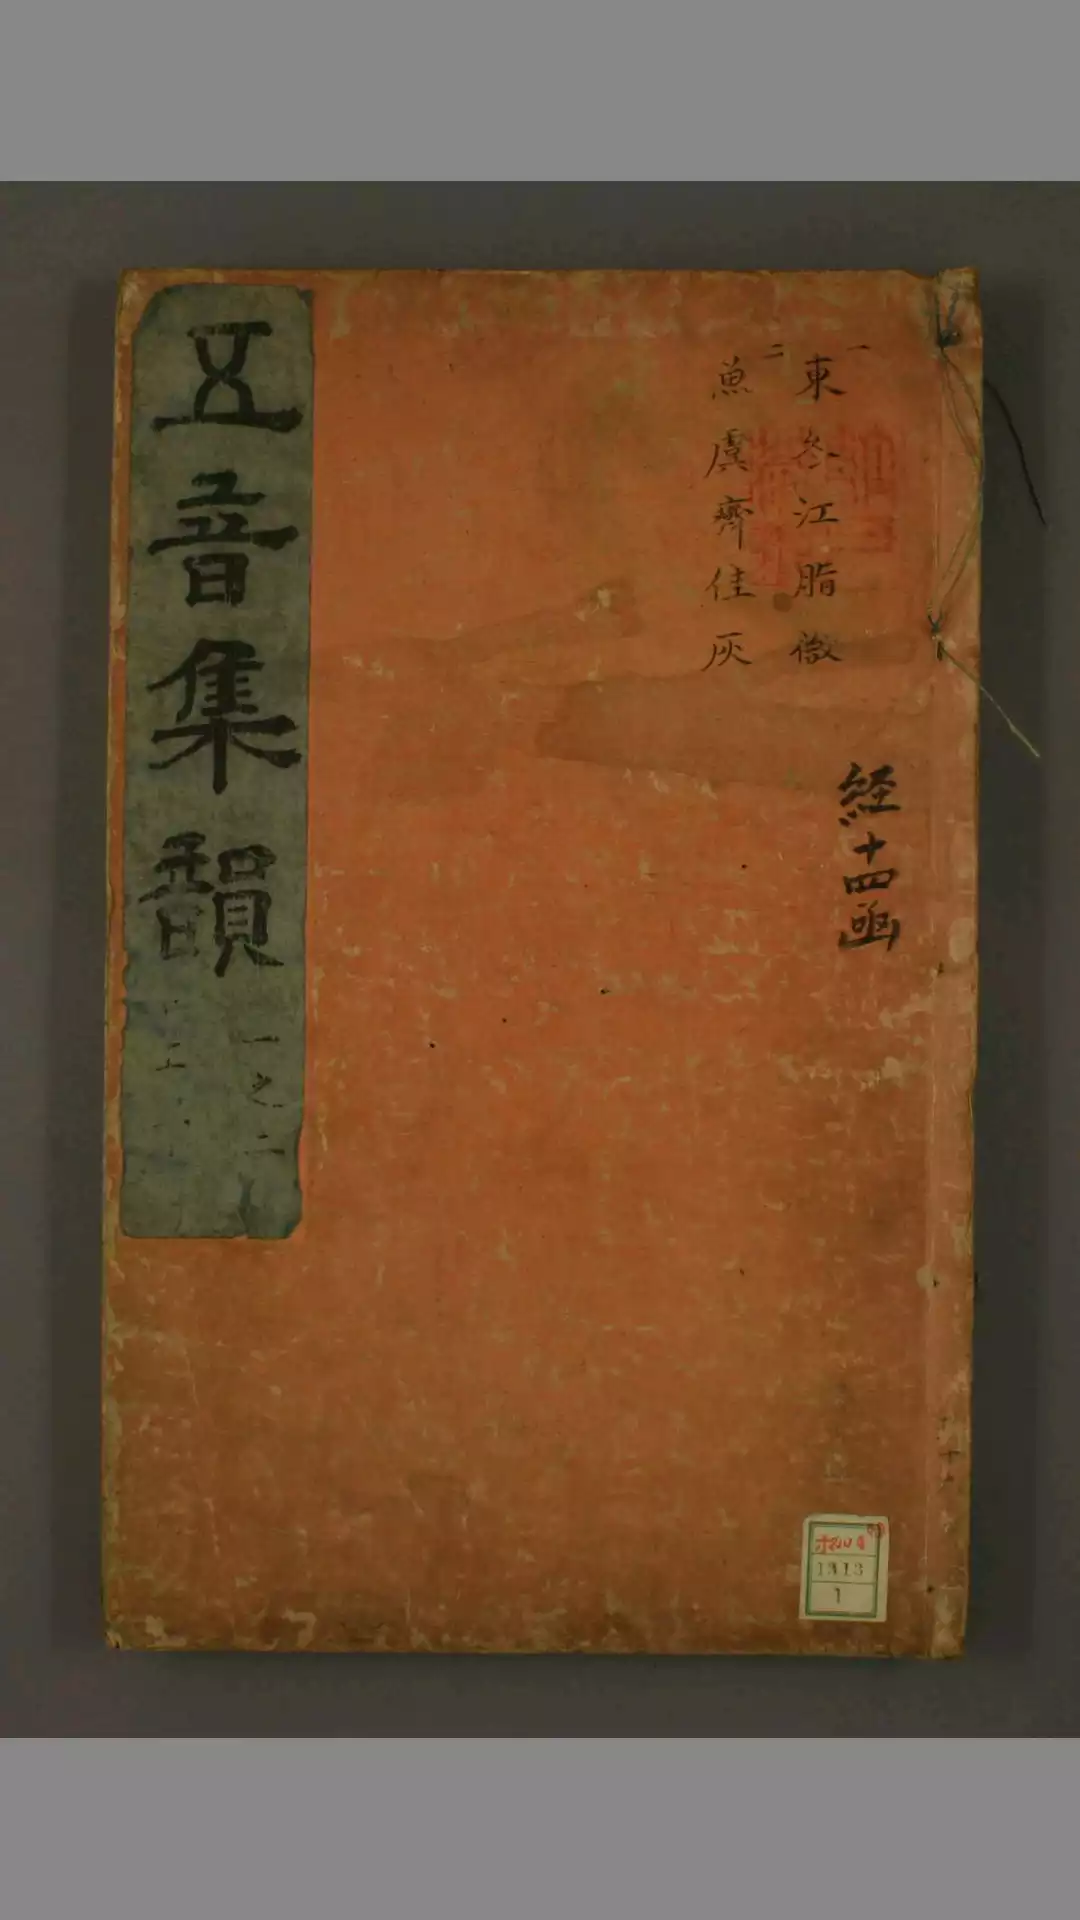 一
東冬江脂微
二
魚虞齊佳灰
経十四函
五音集韻
一之二
1113
1